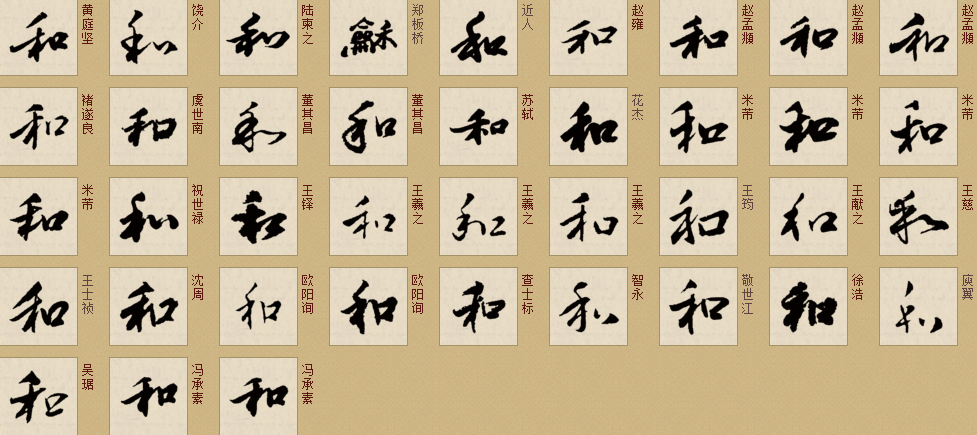 和 黄庭坚 和 饶介 和 陆柬之 龢 郑板桥 和 近人 和 赵雍 和 赵孟頫 和 赵孟頫 和 赵孟頫
和 褚遂良 和 虞世南 和 董其昌 和 董其昌 和 苏轼 和 花杰 和 米芾 和 米芾 和 米芾
和 米芾 和 祝世禄 和 王铎 和 王羲之 和 王羲之 和 王羲之 和 王筠 和 王献之 和 王慈
和 王士祯 和 沈周 和 欧阳询 和 欧阳询 和 查士标 和 智永 和 敬世江 和 徐浩 和 庾翼
和 吴琚 和 冯承素 和 冯承素